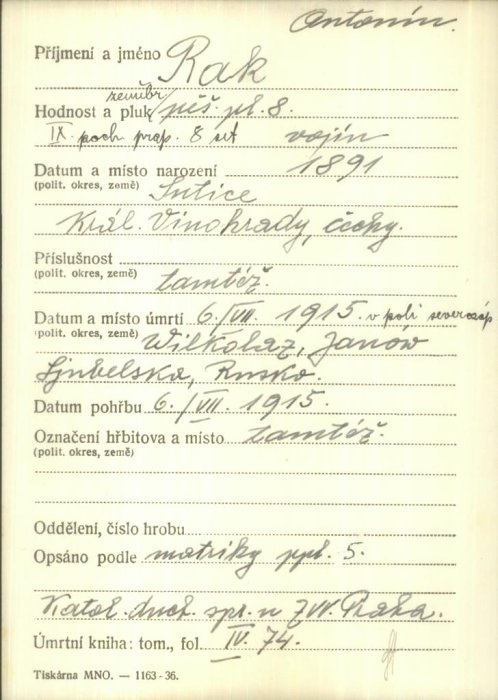 Antonín.
Příjmení a jméno Rak
zeměbr
Hodnost a pluk pěš. pl. 8.
IX. poch. prap. 8 set vojín
Datum a místo narození 1891
(polit. okres, země) Sulice
Král. Vinohrady, Čechy.
Příslušnost
(polit. okres, země) tamtéž.
Datum a místo úmrtí 6./VII. 1915. v poli severozáp
(polit. okres, země) Wilkolaz, Janów
Ljubelska, Rusko.
Datum pohřbu 6./VII. 1915.
Označení hřbitova a místo tamtéž.
(polit. okres, země)
Oddělení, číslo hrobu
Opsáno podle matriky ppl. 5.
Katol. duch. spr. u ZVV. Praha.
Úmrtní kniha: tom., fol. IV. 74.
Tiskárna MNO. — 1163-36.